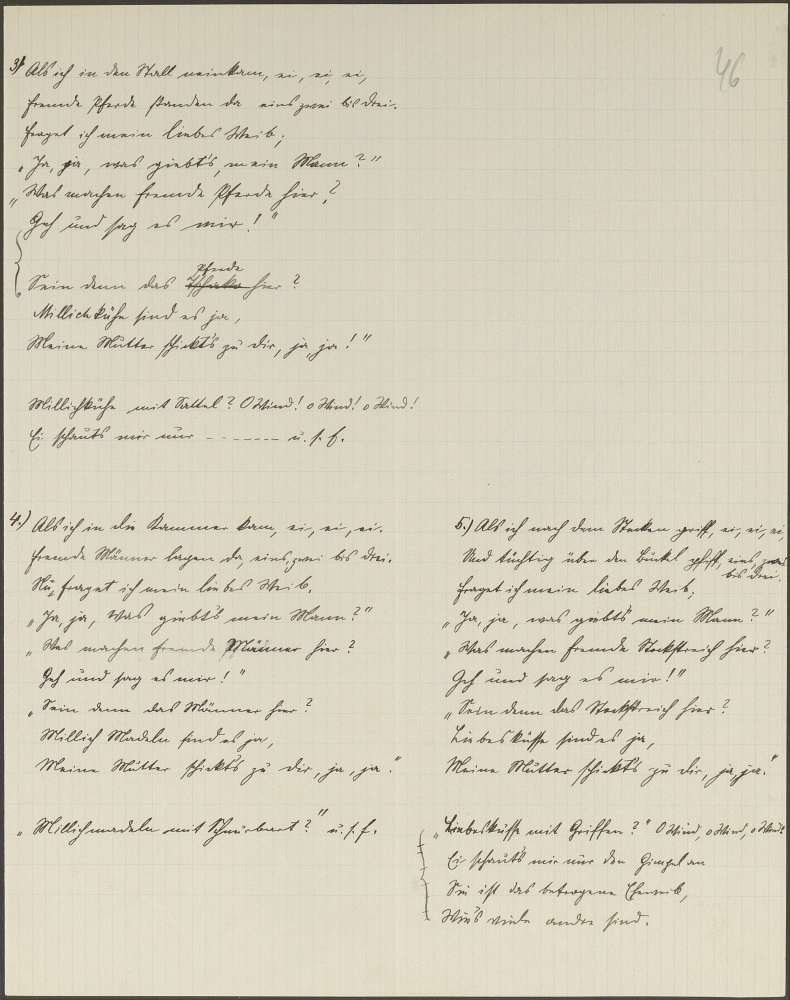 46
3) Als ich in den Stall neinkam, ei, ei, ei,
fremde Pferde standen da eins zwei bis drei.
fraget ich mein liebes Weib;
„Ja, ja, was giebt's, mein Mann?"
„Was machen fremde Pferde hier?
Geh und sag es mir!"
Pferde
Sein denn das Tschako hier?
Millichkühe sind es ja,
Meine Mutter schickt's zu dir, ja, ja!"
Millichkühe mit Sattel? O Wind! o Wind! o Wind!
Ei schauts mir nur - - - - - - - u. s. f.
4.) Als ich in die Kammer kam, ei, ei, ei.
fremde Männer lagen da, eins, zwei bis drei.
Nu, fraget ich mein liebes Weib.
„Ja, ja, was giebt's mein Mann?"
„Was machen fremde Männer hier?
Geh und sag es mir!"
„Sein denn das Männer hier?
Millich Madeln sind es ja,
Meine Mutter schickt's zu dir, ja, ja."
„Millichmadeln mit Schnurbart?" u. s. f.
5.) Als ich nach dem Stecken griff, ei, ei, ei,
Und tüchtig über den Buckel pfiff, eins, zwei
bis drei.
fraget ich mein liebes Weib;
„Ja, ja, was giebt's mein Mann?"
„Was machen fremde Stockstreich hier?
Geh und sag es mir!"
„Sein denn das Stockstreich hier?
Liebesküsse sind es ja,
Meine Mutter schickt's zu dir, ja, ja."
„Liebesküsse mit Griffen?" O Wind, o Wind, o Wind!
Ei schaut's mir nur den Gimpel an
Sei ist das betrogene Eheweib,
Wie's viele andre sind.